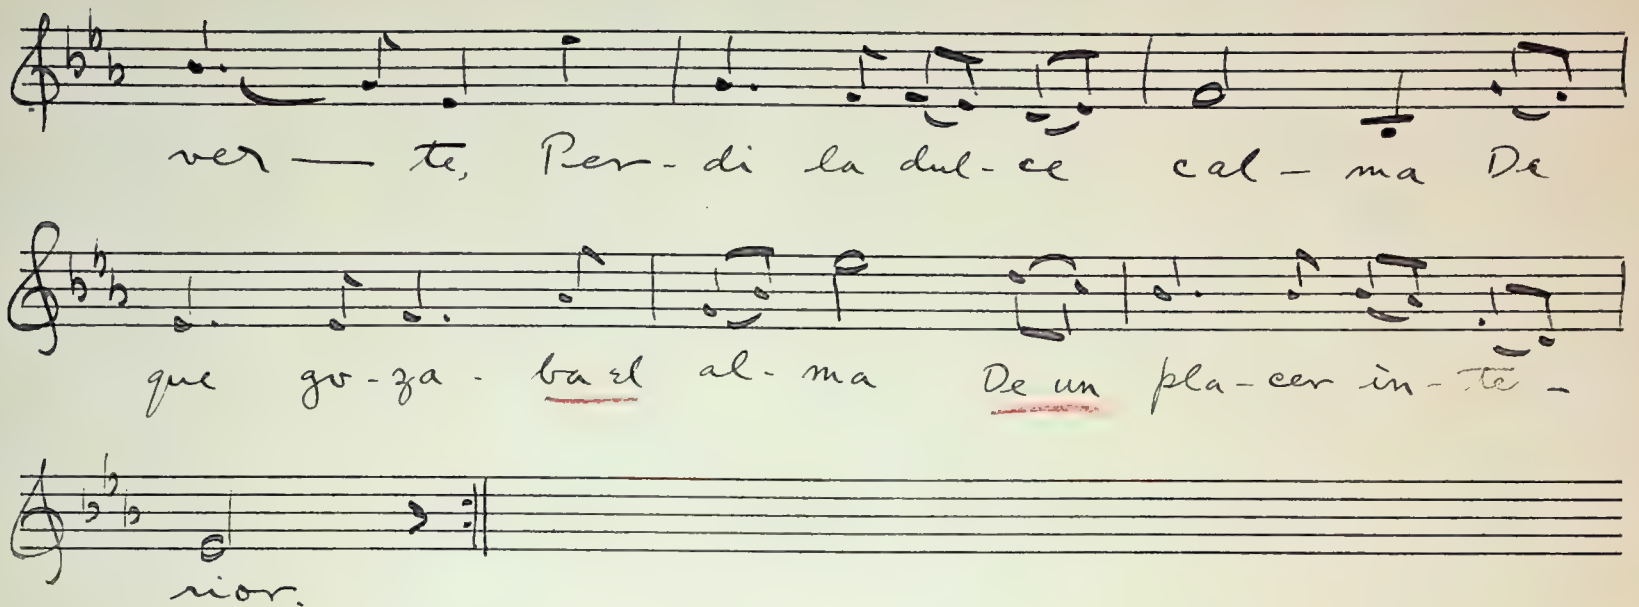 ver — te, Per - di la dul - ce cal - ma De
que go - za - ba el al - ma De un pla - cer in - te -
rior.